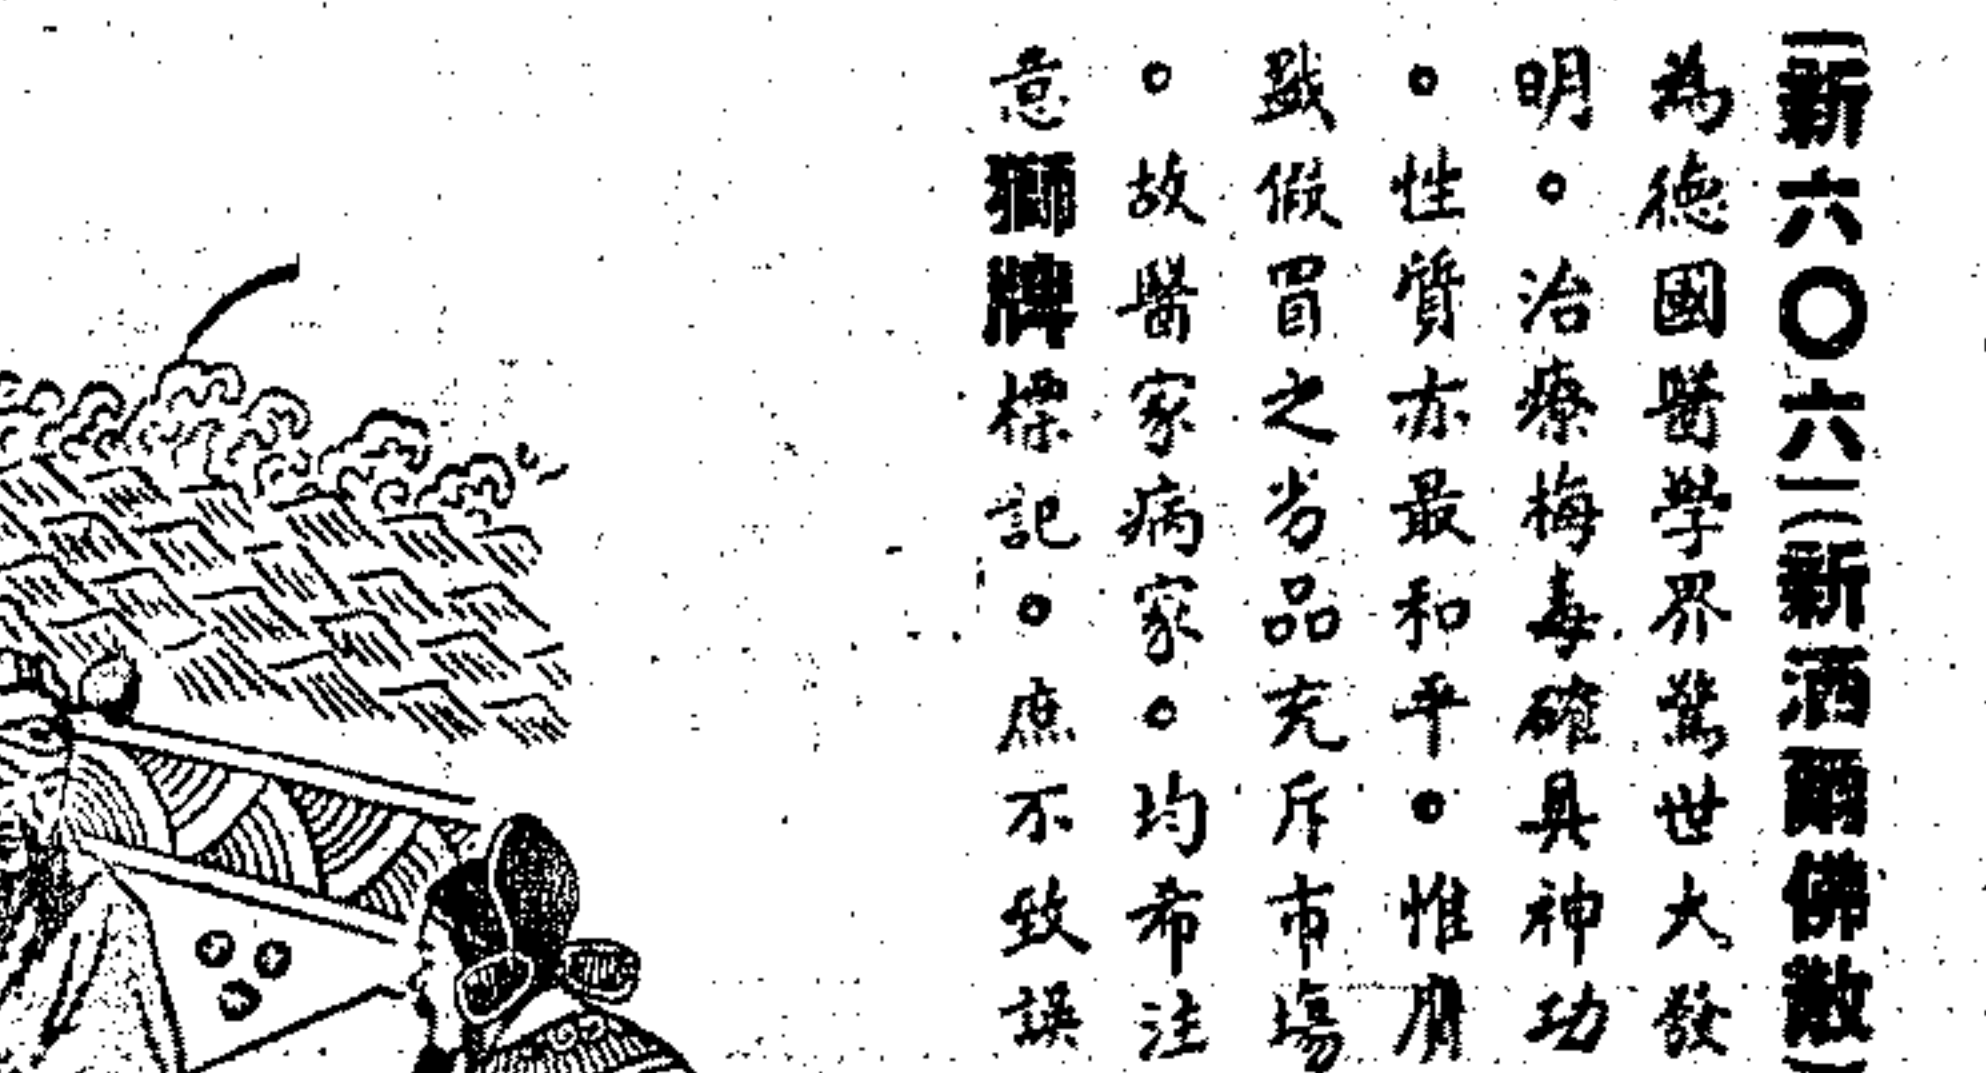 (新六〇六)(新洒爾佛散)
為德國醫學界驚世大發
明。治療梅毒確具神功
。性質亦最和平。惟
假冒之劣品充斥市場
。故醫家病家。均希注
意獅牌標記。庶不致誤